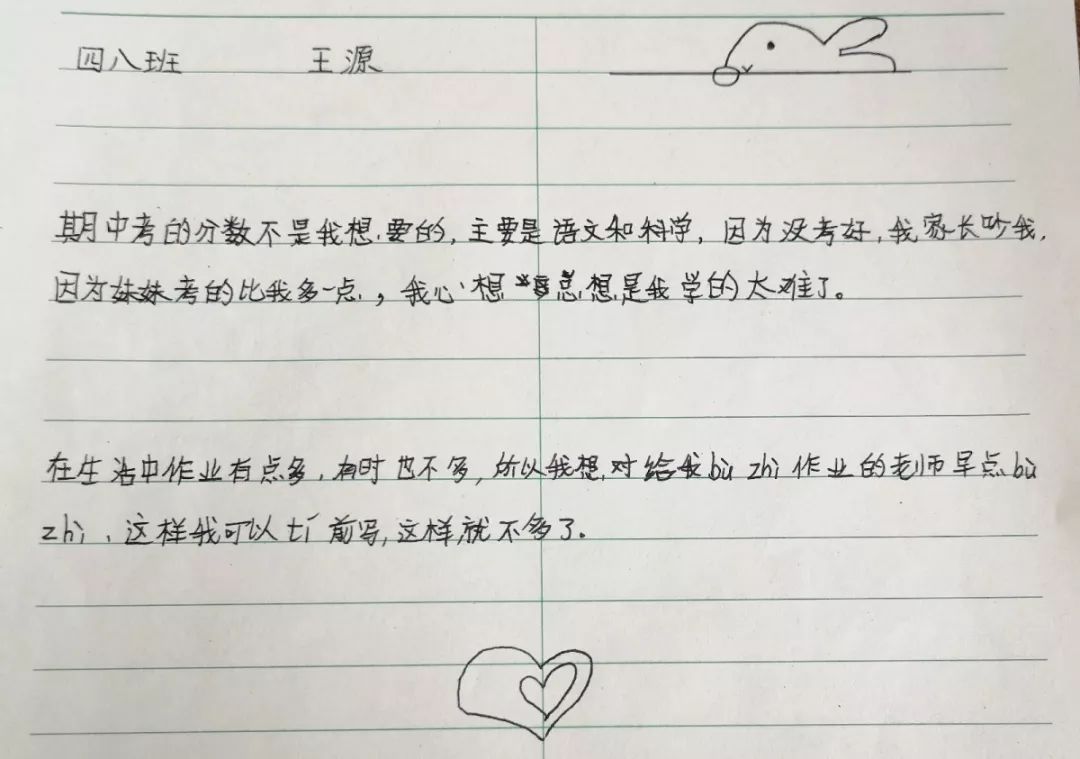 四八班 王源
期中考的分数不是我想要的,主要是语文和科学,因为没考好,我家长吵我,
因为妹妹考的比我多一点,我心想总想是我学的太难了。
在生活中作业有点多,有时也不多,所以我想对给我bù zhì作业的老师早点bù
zhì,这样我可以tí前写,这样就不多了。